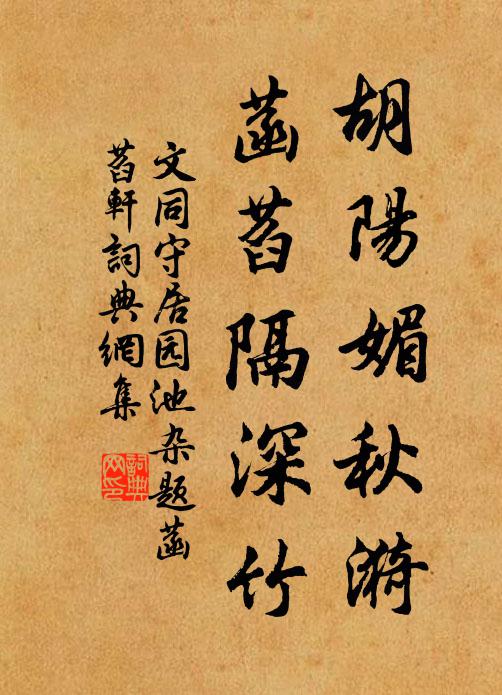 胡陽媚秋漪
菡萏隔深竹
文同守居园池杂题菡
萏軒詞典網集
詞典网印